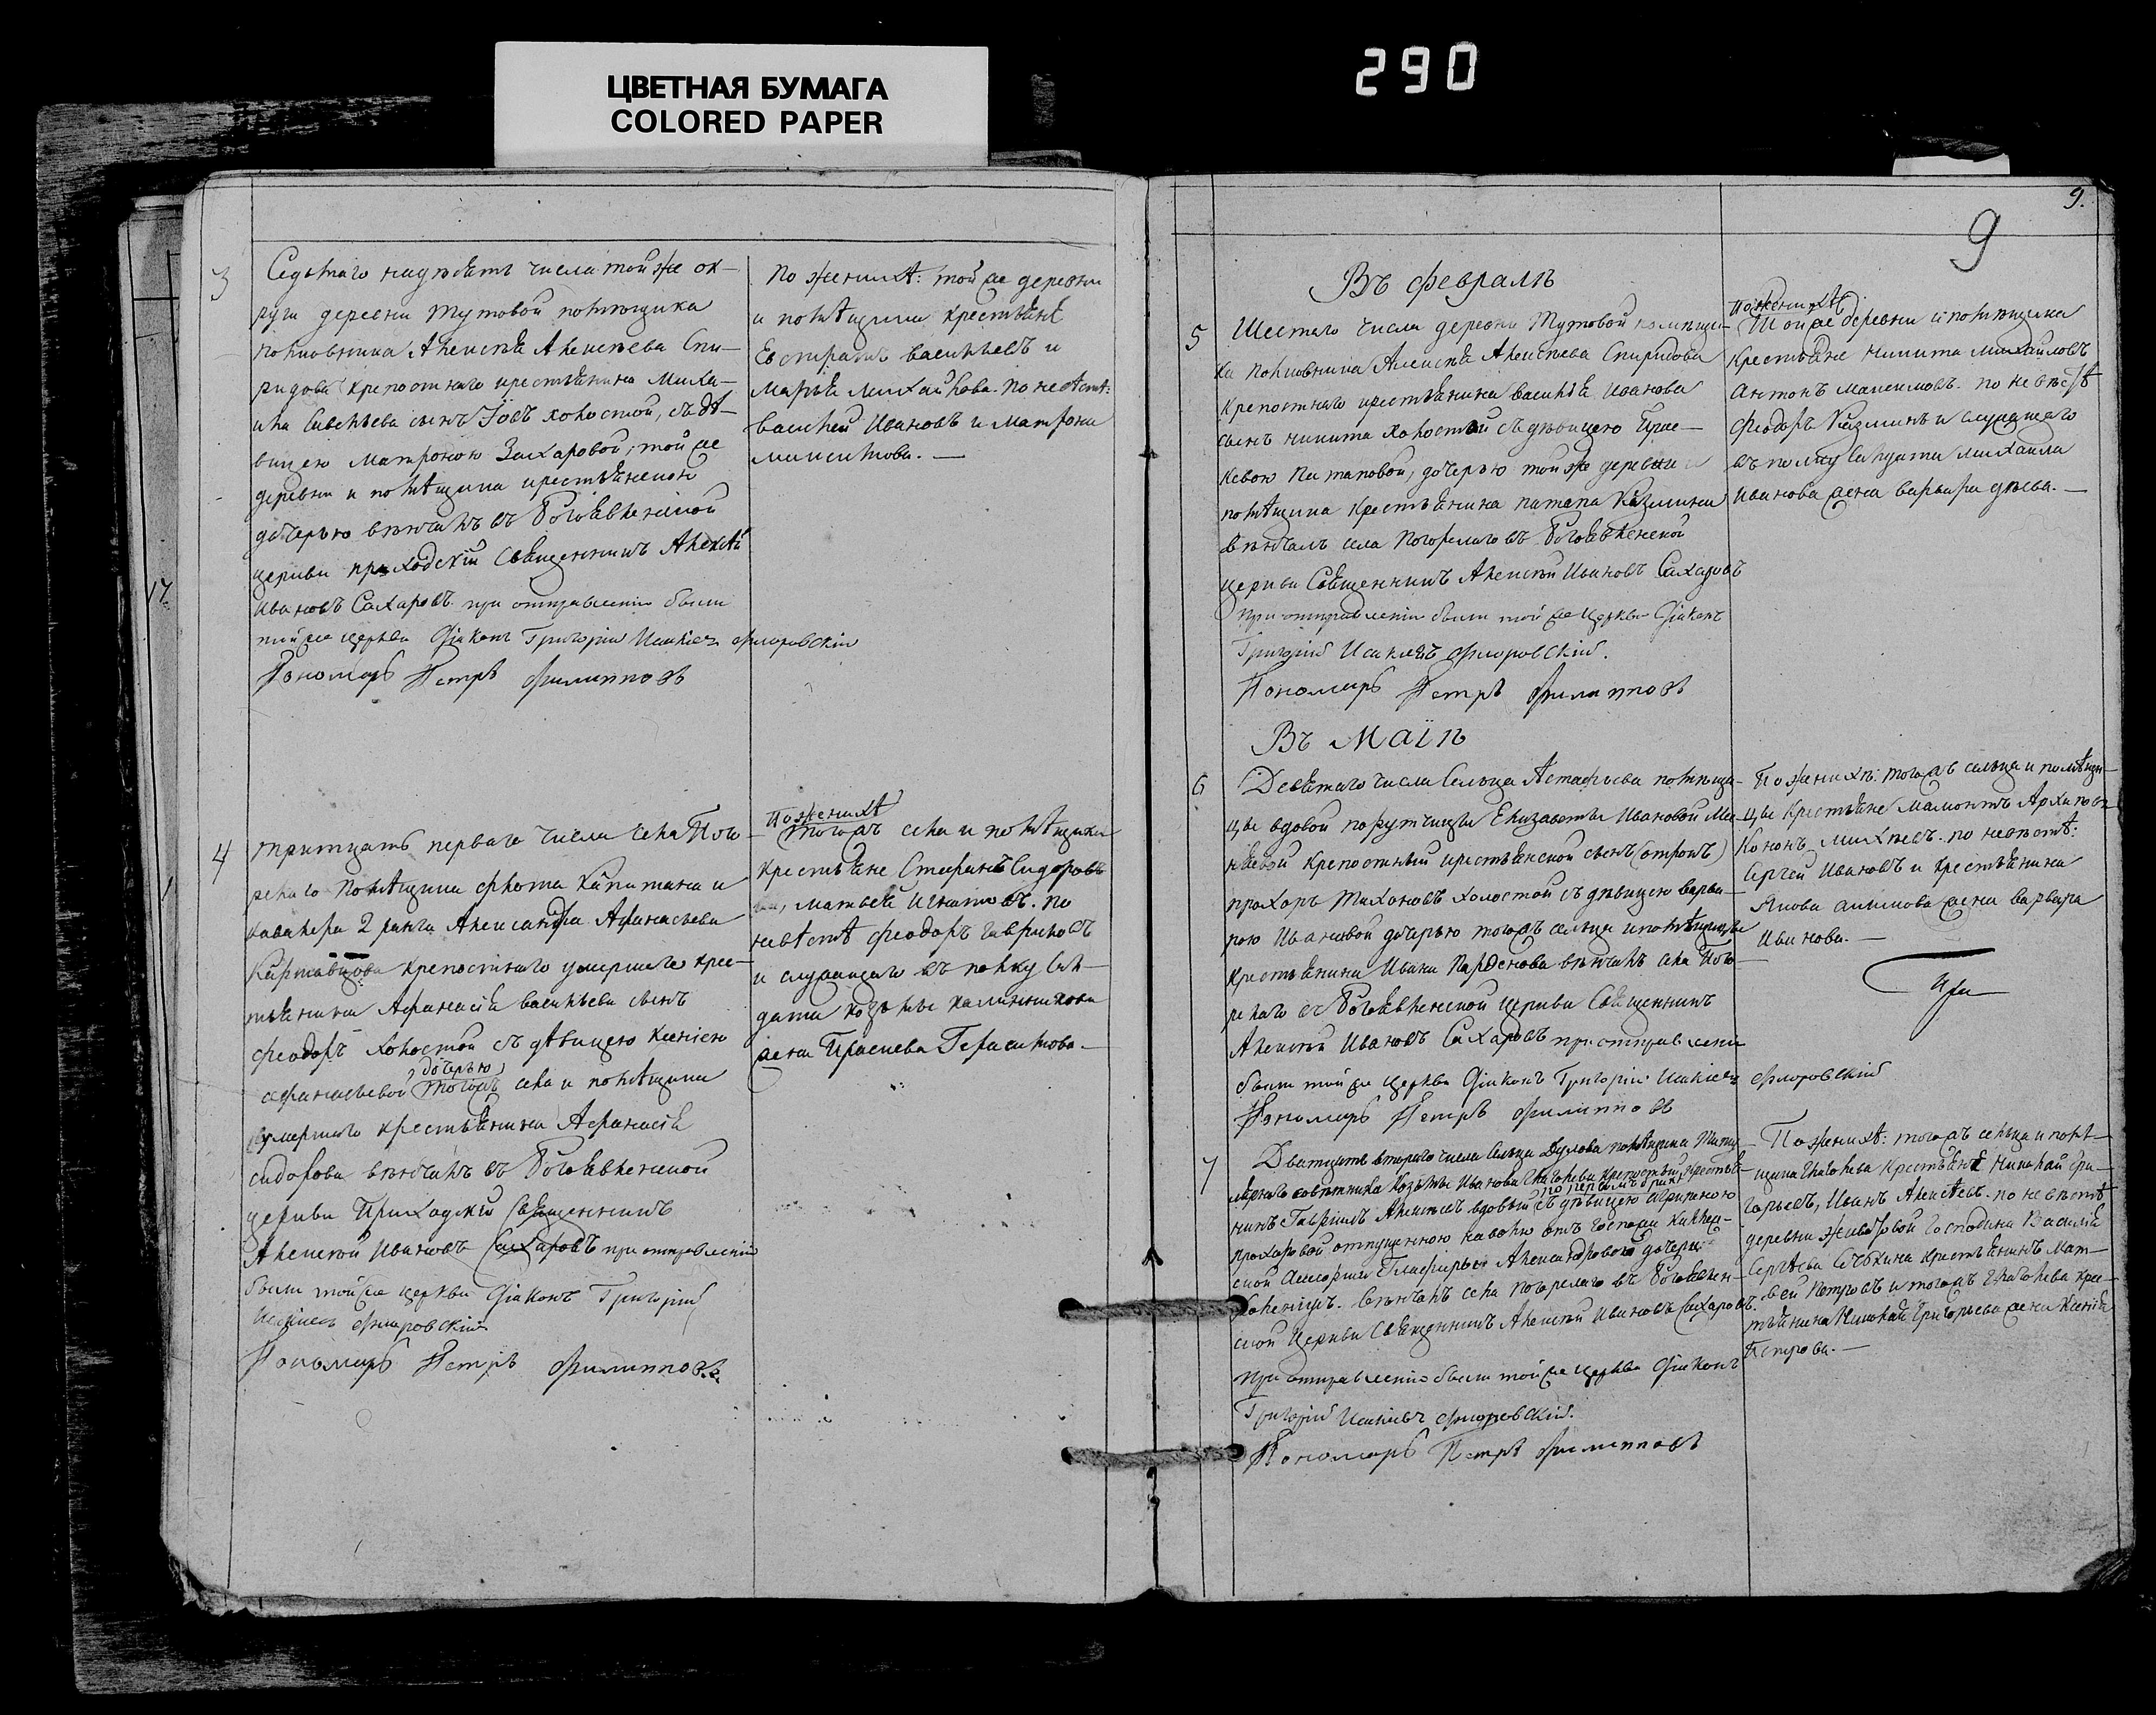 ЦВЕТНАЯ БУМАГА
COLORED PAPER
290
9.
9
3
Седьмаго надесять числа той же ок-
руги деревни Тутовой помещика
полковника Алексѣя Алексѣева Спи-
ридова крепостнаго крестьянина Миха-
ила Савельева сынъ Іовъ холостой, съ дѣ-
вицею Матроною Захаровой, той же
деревни и помѣщика крестьянскою
дочерью вѣнчалъ въ Богоявленской
церкви приходскій Священникъ Алексѣй
Ивановъ Сахаровъ при отправленіи были
той же церкви Діаконъ Григорій Исакіевъ Флоровскій
Пономарь Петръ Филипповъ
По женихѣ: той же деревни
и помѣщика крестьянѣ
Евстратъ Васильевъ и
Марья Михайлова. По невѣстѣ:
Василей Ивановъ и Матрона
17
4
тритцать перваго числа села Пого-
релаго помѣщика флота Капитана и
кавалера 2 ранга Александра Афанасьева
крепостнаго умершаго крес-
тьянина Афанасія Васильева сынъ
Феодоръ холостой съ дѣвицею Ксеніею
Афанасьевой дочерью тогожъ села и помѣщика
умершаго крестьянина Афанасія
Сидорова вѣнчалъ въ Богоявленской
церкви Приходскій Священникъ
Алексѣй Ивановъ Сахаровъ при отправленіи
были той же церкви Діаконъ Григорій
Исакіевъ Флоровскій
Пономарь Петръ Филипповъ
По женихѣ
тогожъ села и помѣщика
крестьяне Стефанъ Сидоровъ
Матвей Игнатовъ. по
невѣстѣ Феодоръ Гавриловъ
и служащаго въ полку сал-
дата Козьмы Калинникова
жена Праскева Герасимова.
Въ Февралѣ
5
Шестаго числа деревни Тутовой помѣщи-
ка полковника Алексѣя Алексѣева Спиридова
крепостнаго крестьянина Василья Иванова
сынъ Никита холостой съ дѣвицею Прас-
кевою Патаповой, дочерью той же деревни и
помѣщика крестьянина Патапа Казмина
вѣнчалъ села Погорелаго въ Богоявленской
церкви Священникъ Алексѣй Ивановъ Сахаровъ
При отправленіи были той же Церкви Діаконъ
Григорій Исакіевъ Флоровскій.
Пономарь Петръ Филипповъ
По женихѣ
Той же деревни и помѣщика
крестьяне Никита Михайловъ
Антонъ Максимовъ. по невѣстѣ
Феодоръ Казминъ и служащаго
въ полку салдата Михаила
Иванова жена Варвара
Въ Маіѣ
6
Девятаго числа Сельца Астафьева помѣщи-
цы вдовой порутчицы Елизаветы Ивановой
крепостный крестьянской сынъ (отрокъ)
Прохоръ Тихоновъ холостой съ дѣвицею Варва-
рою Ивановой дочерью тогожъ сельца и помѣщицы
крестьянина Ивана Парфенова вѣнчалъ села Пого-
релаго въ Богоявленской церкви Священникъ
Алексѣй Ивановъ Сахаровъ при отправленіи
были той же церкви Діаконъ Григорій Исакіевъ Флоровскій
Пономарь Петръ Филипповъ
По женихѣ: тогожъ сельца и помѣщи-
цы Крестьяне Мамонтъ
Кононъ Михѣевъ. по невѣстѣ:
Сергей Ивановъ и крестьянина
Якова жена Варвара
Иванова.
7
Дватцать втораго числа Сельца Дулова помѣщика Титу-
лярнаго совѣтника Козьмы Иванова Глаголева крепостный крестья-
нинъ Гаврилъ Алексѣевъ вдовый по первомъ бракѣ съ дѣвицею Ириною
Прохоровой отпущенною на волю отъ Господи
Глафиры Александровой дочери
вѣнчалъ села Погорелаго въ Богоявлен-
ской Церкви Священникъ Алексѣй Ивановъ Сахаровъ.
При отправленіи были той же церкви Діаконъ
Григорій Исакіевъ Флоровскій.
Пономарь Петръ Филипповъ
По женихѣ: тогожъ сельца и помѣ-
щика Глаголева Крестьянѣ Николай Гри-
горьевъ, Иванъ Алексѣевъ. по невѣстѣ
деревни Господина Василія
Сергѣева крестьянинъ Мат-
вей Петровъ и тогожъ Глаголева крес-
тьянина Николая Григорьева жена Ксенія
Петрова.